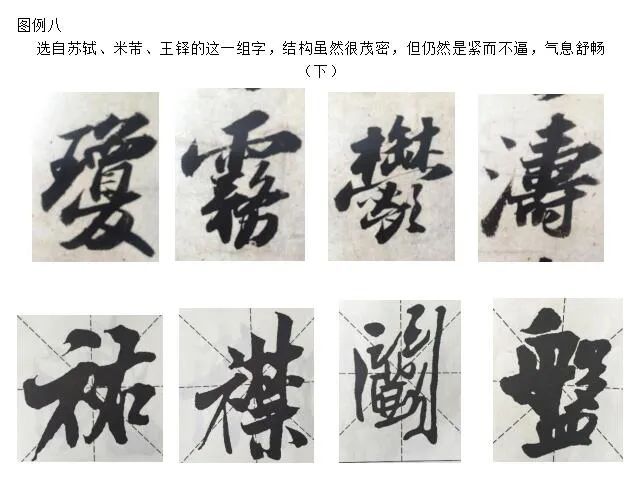 图例八
选自苏轼、米芾、王铎的这一组字，结构虽然很茂密，但仍然是紧而不逼，气息舒畅
（下）
瓊 霧 鬱 濤
祐 襟 關 盤